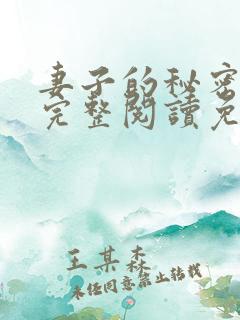 妻子的秘密
完整閱讀免
王某森
未经同意禁止转载